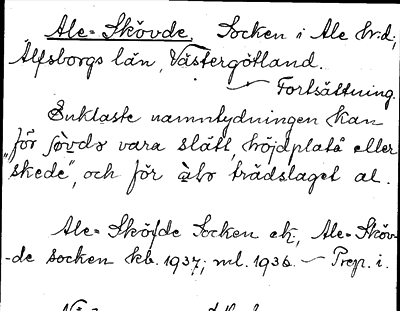 Ale-Skövde. Socken i Ale hrd;
Älfsborgs län, Västergötland.
— Fortsättning.
Enklaste namntydningen kan
för sövdo vara slätt, höjdplatå eller
"skede", och för alo trädslaget al.
Ale-Sköfde Socken ek; Ale-Sköv-
-de socken kb. 1937; ml. 1936. — Prep. i.